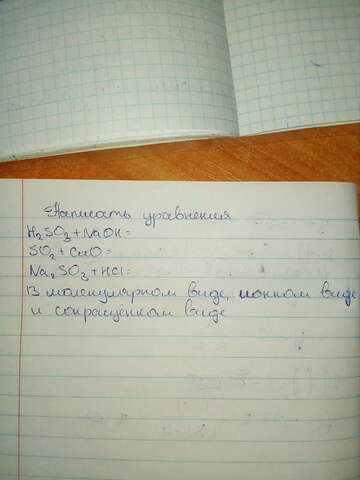 Написать уравнения
H₂SO₃ + NaOH =
SO₂ + CuO =
Na₂SO₃ + HCl =
В молекулярном виде, ионном виде
и сокращенном виде